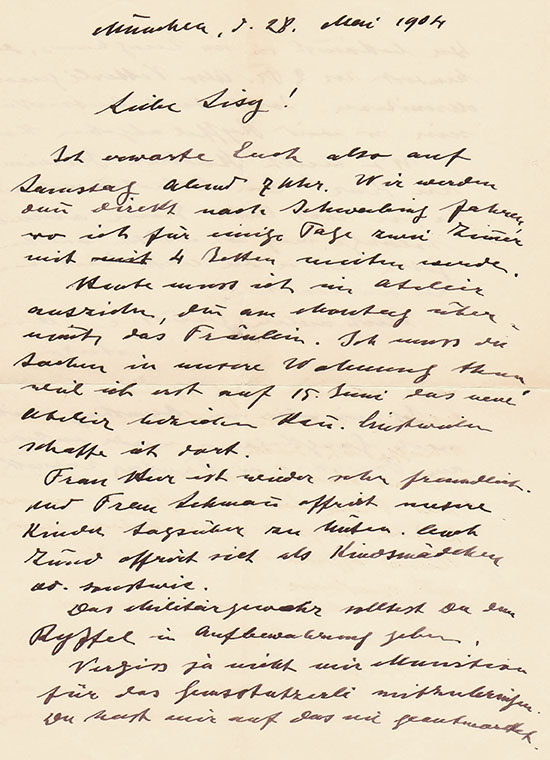 München, d. 28. Mai 1904
Liebe Lisy!
Ich erwarte Euch also auf
Samstag Abend 7 Uhr. Wir werden
dann direkt nach Schwabing fahren,
wo ich für einige Tage zwei Zimmer
mit mit 4 Betten mieten werde.
Heute muss ich im Atelier
ausziehen, denn am Montag über-
nimmt das Fräulein. Ich muss die
Sachen in unsere Wohnung thun
weil ich erst auf 15. Juni das neue
Atelier beziehen kann. Einstweilen
schaffe ich dort.
Frau ist wieder sehr freundlich.
und Frau offrirt unsere
Kinder tagsüber zu hüten. Auch
Zünd offrirt sich als Kindsmädchen
od. sonstwie.
Das Militärgewehr solltest Du dem
Ryffel in Aufbewahrung geben.
Vergiss ja nicht mir Munition
für das Gemsstutzerli mitzubringen.
Du hast mir auf das nie geantwortet.